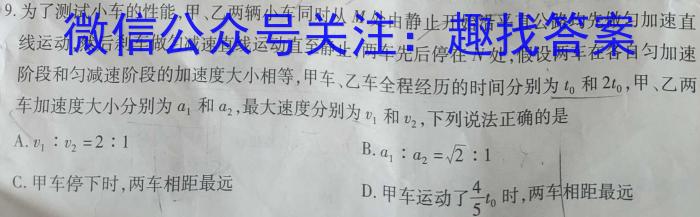 9.为了测试小车的性能,甲、乙两辆小车同时从M处由静止开始沿平直公路先做匀加速直
线运动,然后刹车做匀减速直线运动直至静止,两车先后停在N处,假设两车在各自匀加速
微信公众号关注：趣找答案
阶段和匀减速阶段的加速度大小相等,甲车、乙车全程经历的时间分别为t₀和2t₀,甲、乙两
车加速度大小分别为a₁和a₂,最大速度分别为v₁和v₂,下列说法正确的是
A.v₁:v₂=2:1
B.a₁:a₂=√2:1
C.甲车停下时,两车相距最远
D.甲车运动了4/5t₀时,两车相距最远